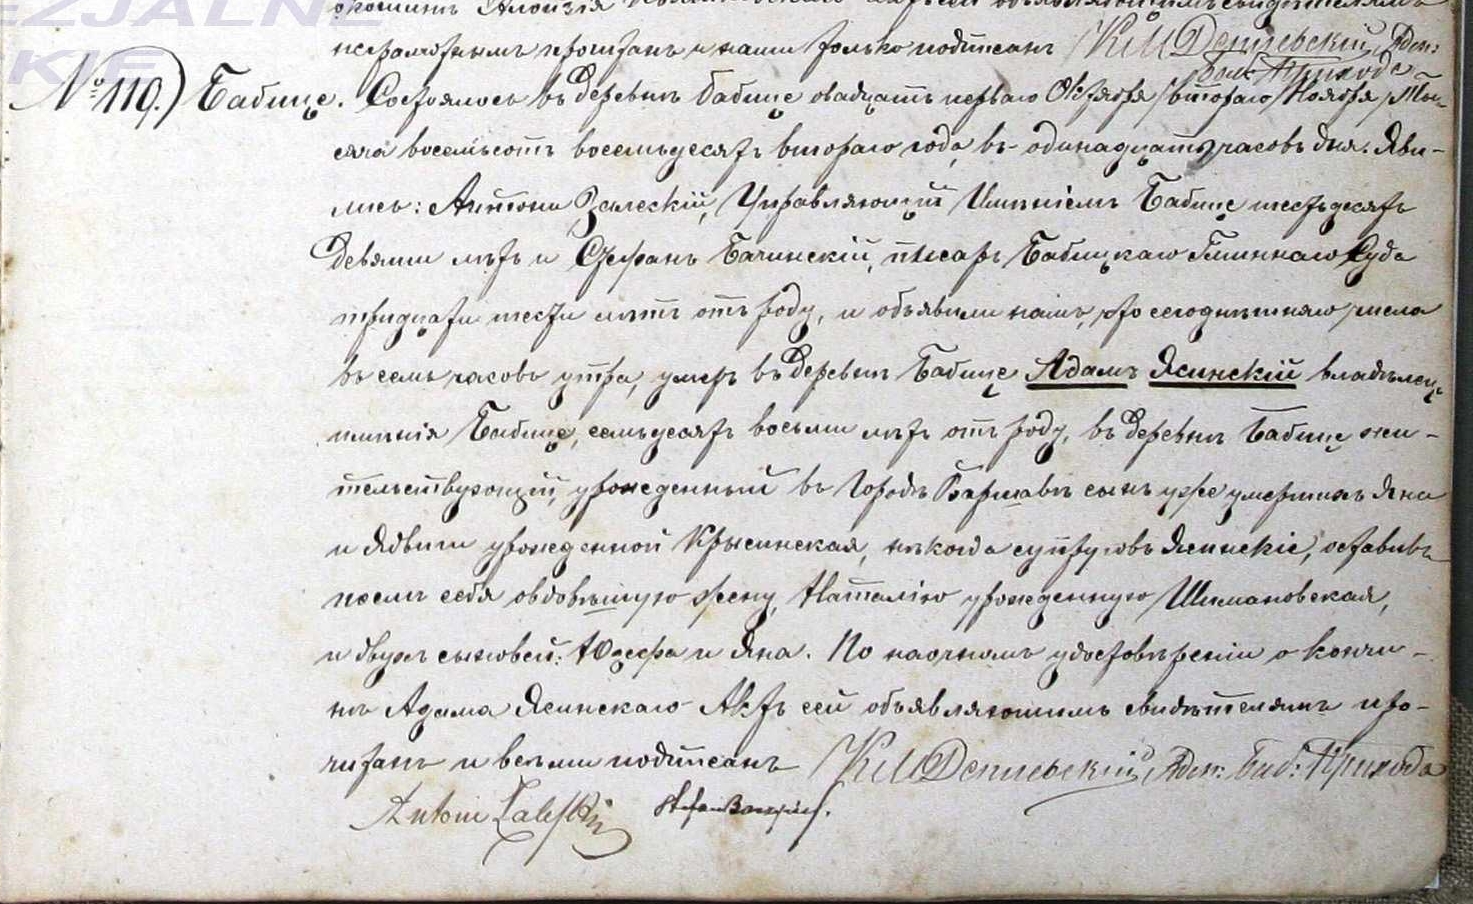 EZJALNE
KIE
неграмотнымъ прочитанъ и нами только подписанъ КсМДемчевскій, Адм:
Баб: Прихода
№ 119.) Бабице. Состоялось въ деревни Бабице двадцать перваго Октября /втораго/ Ноября /Ты-
сяча восемьсотъ восемьдесятъ втораго года, въ одинадцать часовъ дня. Яви-
лись: Антони Залескій, Управляющій Имѣніемъ Бабице шестьдесятъ
девяти лѣтъ и Стефанъ Бачинскій, писарь Бабицкаго Гминнаго Суда
тридцати шести лѣтъ отъ роду, и объявили намъ, что сегоднѣшняго числа
въ семь часовъ утра, умеръ въ деревни Бабице Адамъ Ясинскій владѣлец
имѣнія Бабице, семьдесятъ восьми лѣтъ отъ роду, въ деревни Бабице жи-
тельствующій, урожденный въ Городѣ Варшавѣ сынъ уже умершихъ Яна
и Ядвиги урожденной Крысинская, нѣкогда супруговъ Ясинскіе, оставивъ
послѣ себя овдовѣвшую жену, Наталію урожденную Шимановская,
и двухъ сыновей: Юзефа и Яна. По наочномъ удостовѣреніи о кончи-
нѣ Адама Ясинскаго Актъ сей объявляющимъ свидѣтелямъ про-
читанъ и всѣми подписанъ КсМДемчевскій, Адм: Баб: Прихода
Antoni Zaleski Stefan